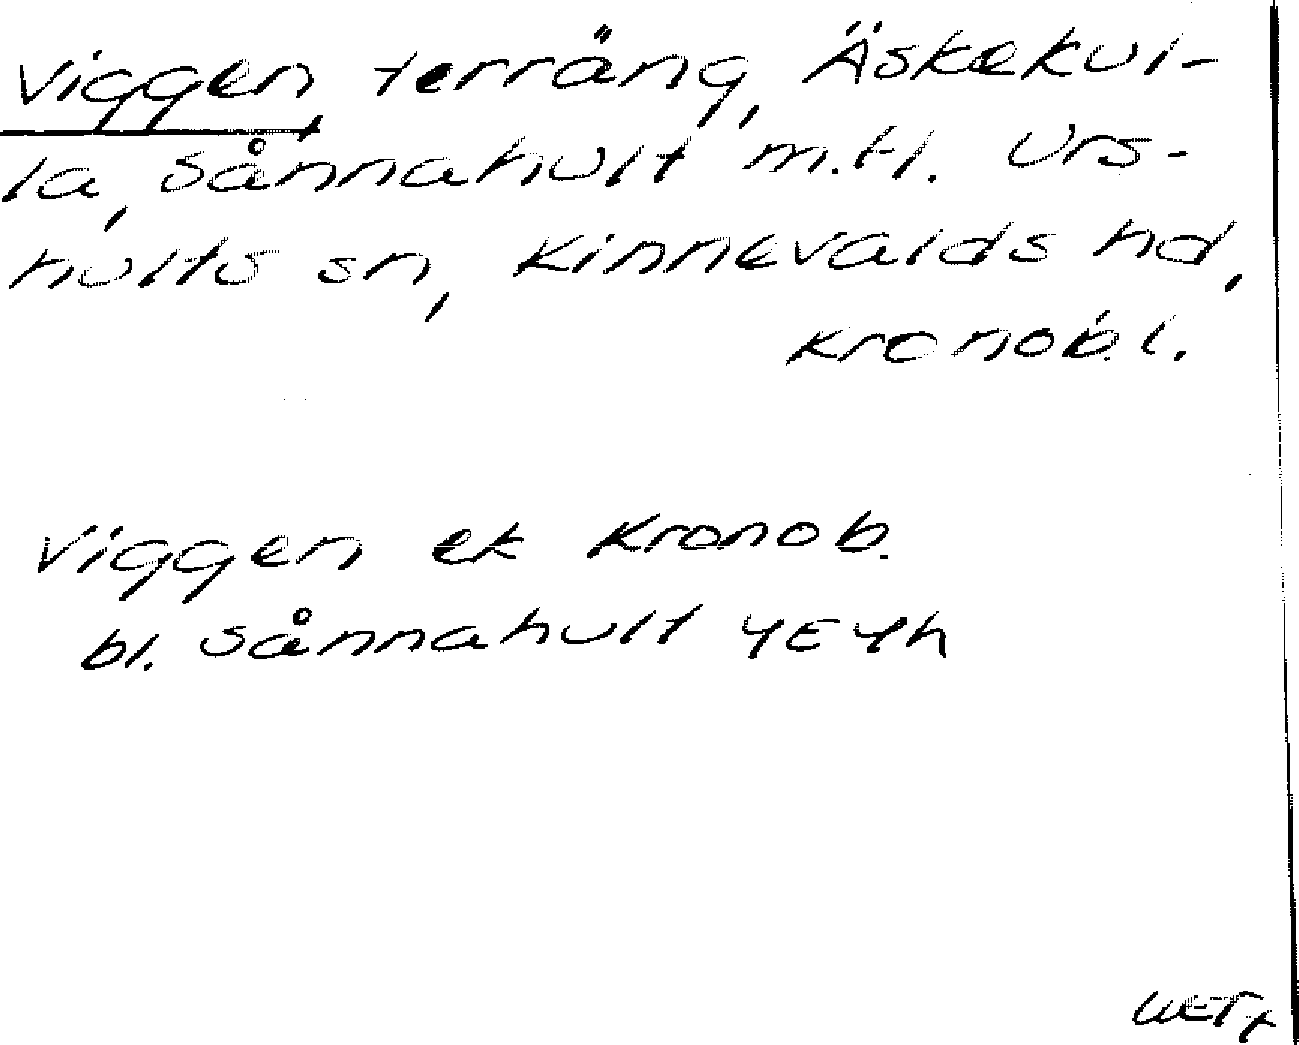 Viggen, terräng, Äskekul-
la, Sånnahult m.fl. Urs-
hults sn, Kinnevalds hd,
Kronob.l.
Viggen ek Kronob.
bl. Sånnahult 4E4h